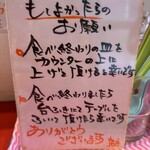 もしよかったらの
お願い
食べ終わりの皿を
カウンターの上に
上げて頂けると幸いです
食べ終わりましたら
ふきんにてテーブルを
ふいて頂けたら幸いです
ありがとう
ございます